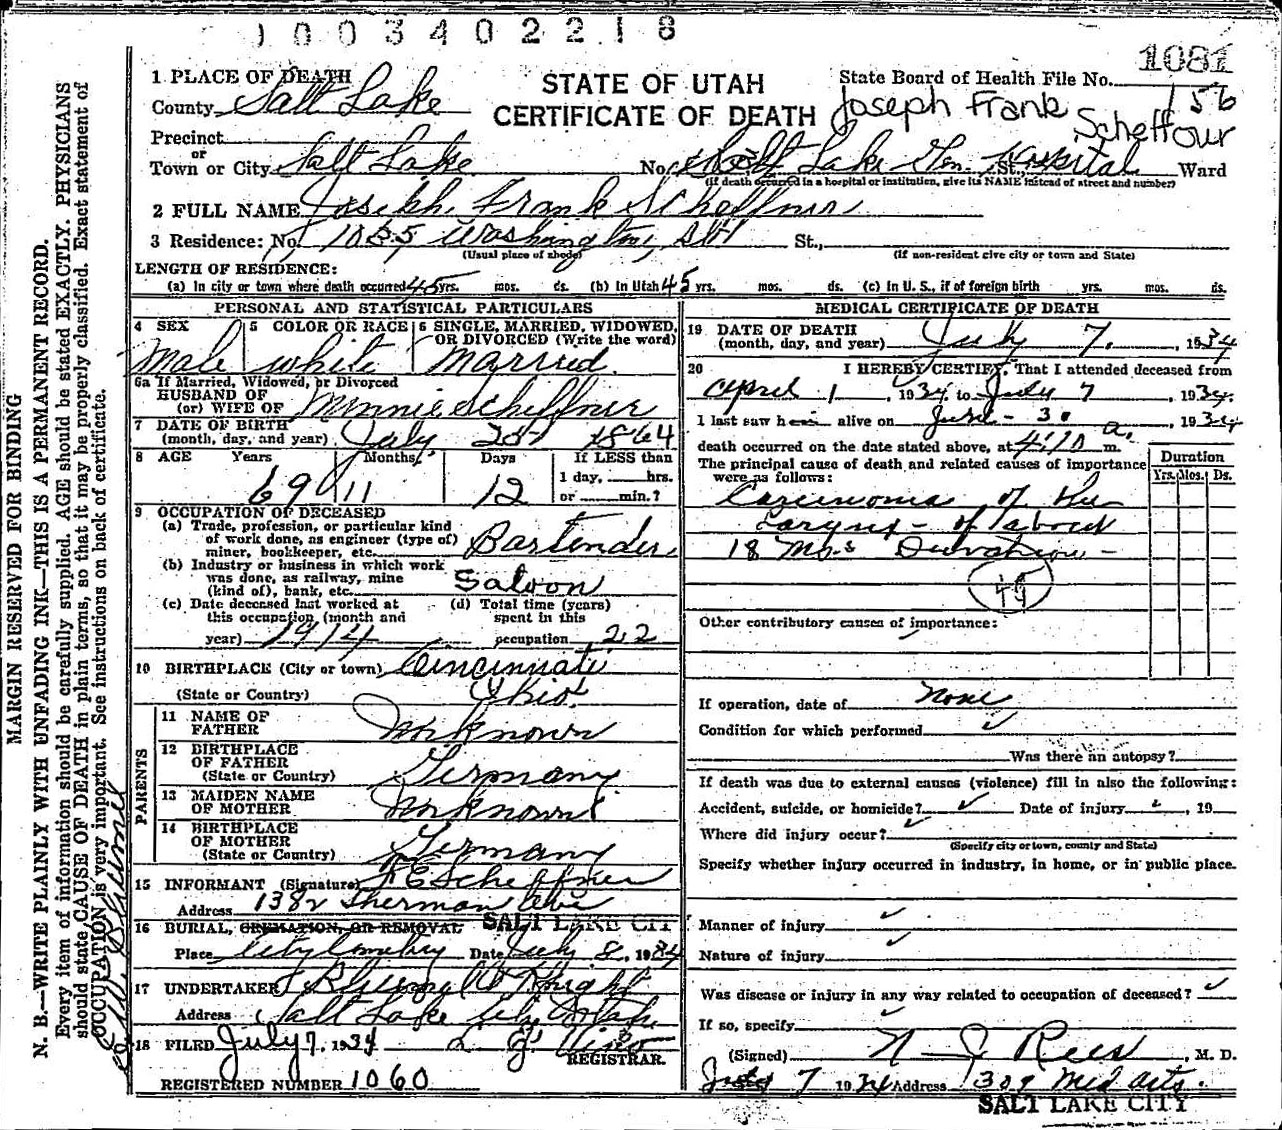 1003402218
1081
1 PLACE OF DEATH
County Salt Lake
STATE OF UTAH
CERTIFICATE OF DEATH
State Board of Health File No. 156
Joseph Frank
Scheffour
Precinct
or
Town or City Salt Lake No. Salt Lake Gen. Hospital St., Ward
(If death occurred in a hospital or institution, give its NAME instead of street and number)
2 FULL NAME Joseph Frank Scheffner
3 Residence: No. 1035 Washington, St., 
(Usual place of abode) (If non-resident give city or town and State)
LENGTH OF RESIDENCE:
(a) In city or town where death occurred 45 yrs. mos. ds. (b) In Utah 45 yrs. mos. ds. (c) In U. S., if of foreign birth yrs. mos. ds.
PERSONAL AND STATISTICAL PARTICULARS
4 SEX
Male
5 COLOR OR RACE
white
6 SINGLE, MARRIED, WIDOWED,
OR DIVORCED (Write the word)
Married.
6a If Married, Widowed, or Divorced
HUSBAND OF
(or) WIFE OF Minnie Scheffner
7 DATE OF BIRTH
(month, day, and year) July 25 1864
8 AGE Years Months Days If LESS than
1 day, hrs.
or min.?
69 11 12
9 OCCUPATION OF DECEASED
(a) Trade, profession, or particular kind
of work done, as engineer (type of)
miner, bookkeeper, etc. Bartender
(b) Industry or business in which work
was done, as railway, mine
(kind of), bank, etc. Saloon
(c) Date deceased last worked at
this occupation (month and
year) 1914
(d) Total time (years)
spent in this
occupation 22
10 BIRTHPLACE (City or town) Cincinnati
(State or Country) Ohio
PARENTS
11 NAME OF
FATHER Unknown
12 BIRTHPLACE
OF FATHER
(State or Country) Germany
13 MAIDEN NAME
OF MOTHER Unknown
14 BIRTHPLACE
OF MOTHER
(State or Country) Germany
15 INFORMANT (Signature) F E Scheffner
Address 1382 Sherman Ave
16 BURIAL, CREMATION, OR REMOVAL SALT LAKE CITY
Place City Cemetery Date July 8, 1934
17 UNDERTAKER
Address Salt Lake City Utah
18 FILED July 7, 1934
REGISTRAR.
REGISTERED NUMBER 1060
MEDICAL CERTIFICATE OF DEATH
19 DATE OF DEATH
(month, day, and year) July 7. , 1934
20 I HEREBY CERTIFY, That I attended deceased from
April 1 , 1934, to July 7 , 1934.
I last saw h alive on June - 30 , 1934
death occurred on the date stated above, at 4:10 a. m.
The principal cause of death and related causes of importance
were as follows:
Duration
Yrs. Mos. Ds.
Carcinoma of the
Larynx - of about
18 Mos Duration -
Other contributory causes of importance:
If operation, date of none
Condition for which performed
Was there an autopsy?
If death was due to external causes (violence) fill in also the following:
Accident, suicide, or homicide? Date of injury , 19
Where did injury occur?
(Specify city or town, county and State)
Specify whether injury occurred in industry, in home, or in public place.
Manner of injury
Nature of injury
Was disease or injury in any way related to occupation of deceased?
If so, specify
(Signed) N J Rees , M. D.
July 7 1934 Address 1389 Med Arts.
SALT LAKE CITY
MARGIN RESERVED FOR BINDING
N. B.—WRITE PLAINLY WITH UNFADING INK—THIS IS A PERMANENT RECORD.
Every item of information should be carefully supplied. AGE should be stated EXACTLY. PHYSICIANS
should state CAUSE OF DEATH in plain terms, so that it may be properly classified. Exact statement of
OCCUPATION is very important. See instructions on back of certificate.